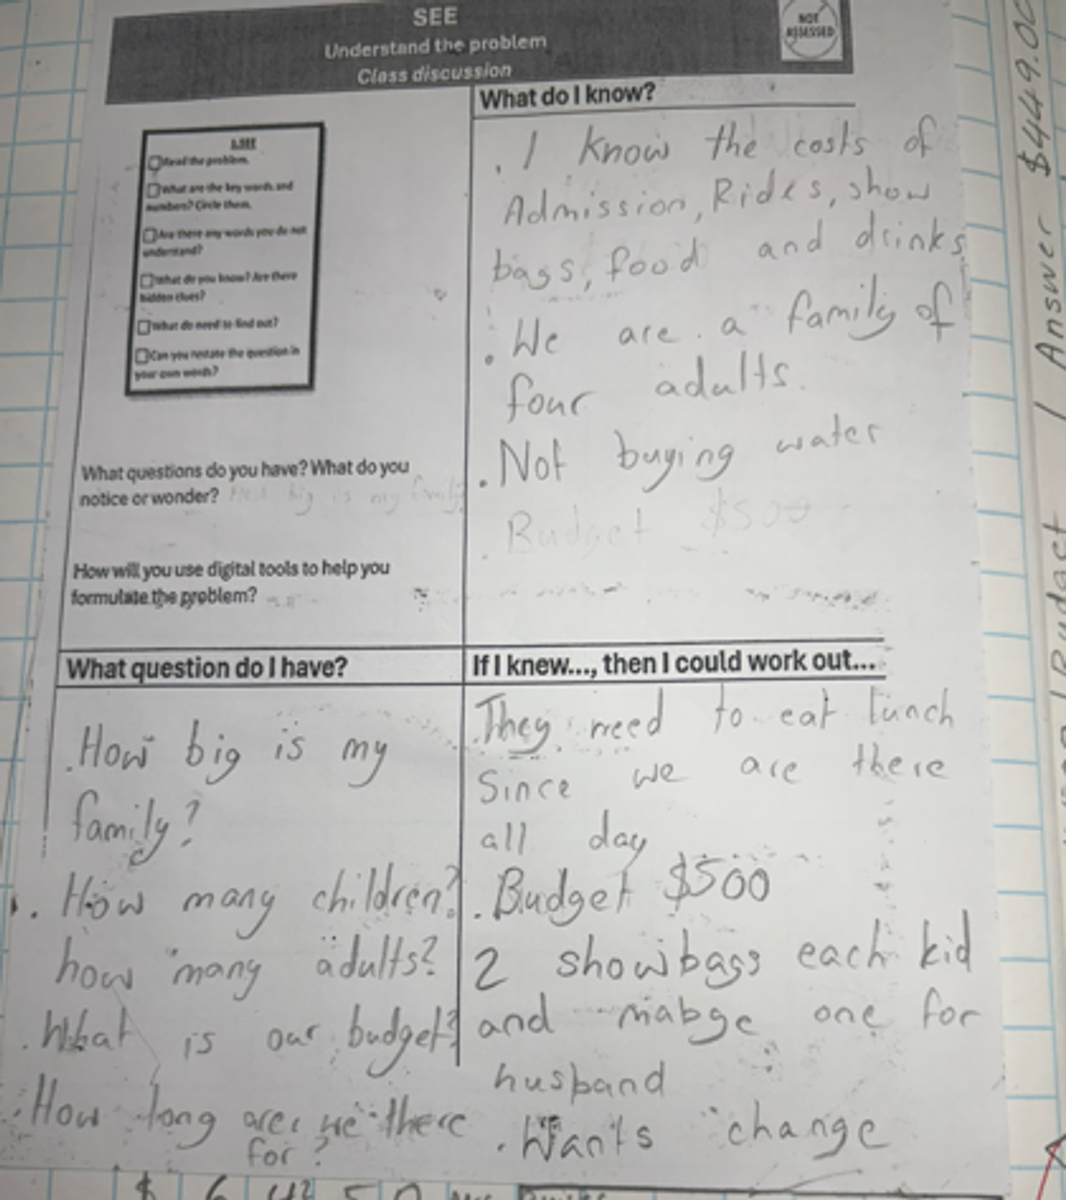 SEE
Understand the problem
Class discussion
NOT
ASSESSED
What do I know?
1.SEE
Read the problem.
What are the key words and
numbers? Circle them.
Are there any words you do not
understand?
What do you know? Are there
hidden clues?
What do need to find out?
Can you restate the question in
your own words?
. I know the costs of
Admission, Rides, show
bags, food and drinks
. We are a family of
four adults.
. Not buying water
. Budget $500
What questions do you have? What do you
notice or wonder? How big is my family
How will you use digital tools to help you
formulate the problem?
What question do I have?
. How big is my
family?
. How many children?
how many adults?
. What is our budget?
. How long are we there
for?
If I knew..., then I could work out...
They need to eat lunch
Since we are there
all day
. Budget $500
2 showbags each kid
and mabge one for
husband
. Wants change
Answer $449.00
Budget